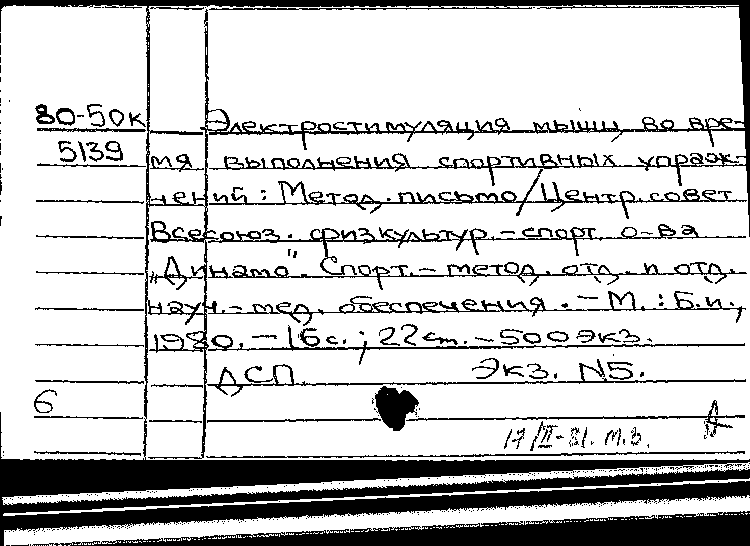 80-50к Электростимуляция мышц во вре-
5139 мя выполнения спортивных упраж-
нений : Метод. письмо / Центр. совет
Всесоюз. физкультур.-спорт. о-ва
„Динамо". Спорт.-метод. отд. и отд.
науч.-мед. обеспечения. - М. : Б.и.,
1980. - 16 с. ; 22 см. - 500 экз.
ДСП. Экз. N5.
6
17/II-81. М.З.